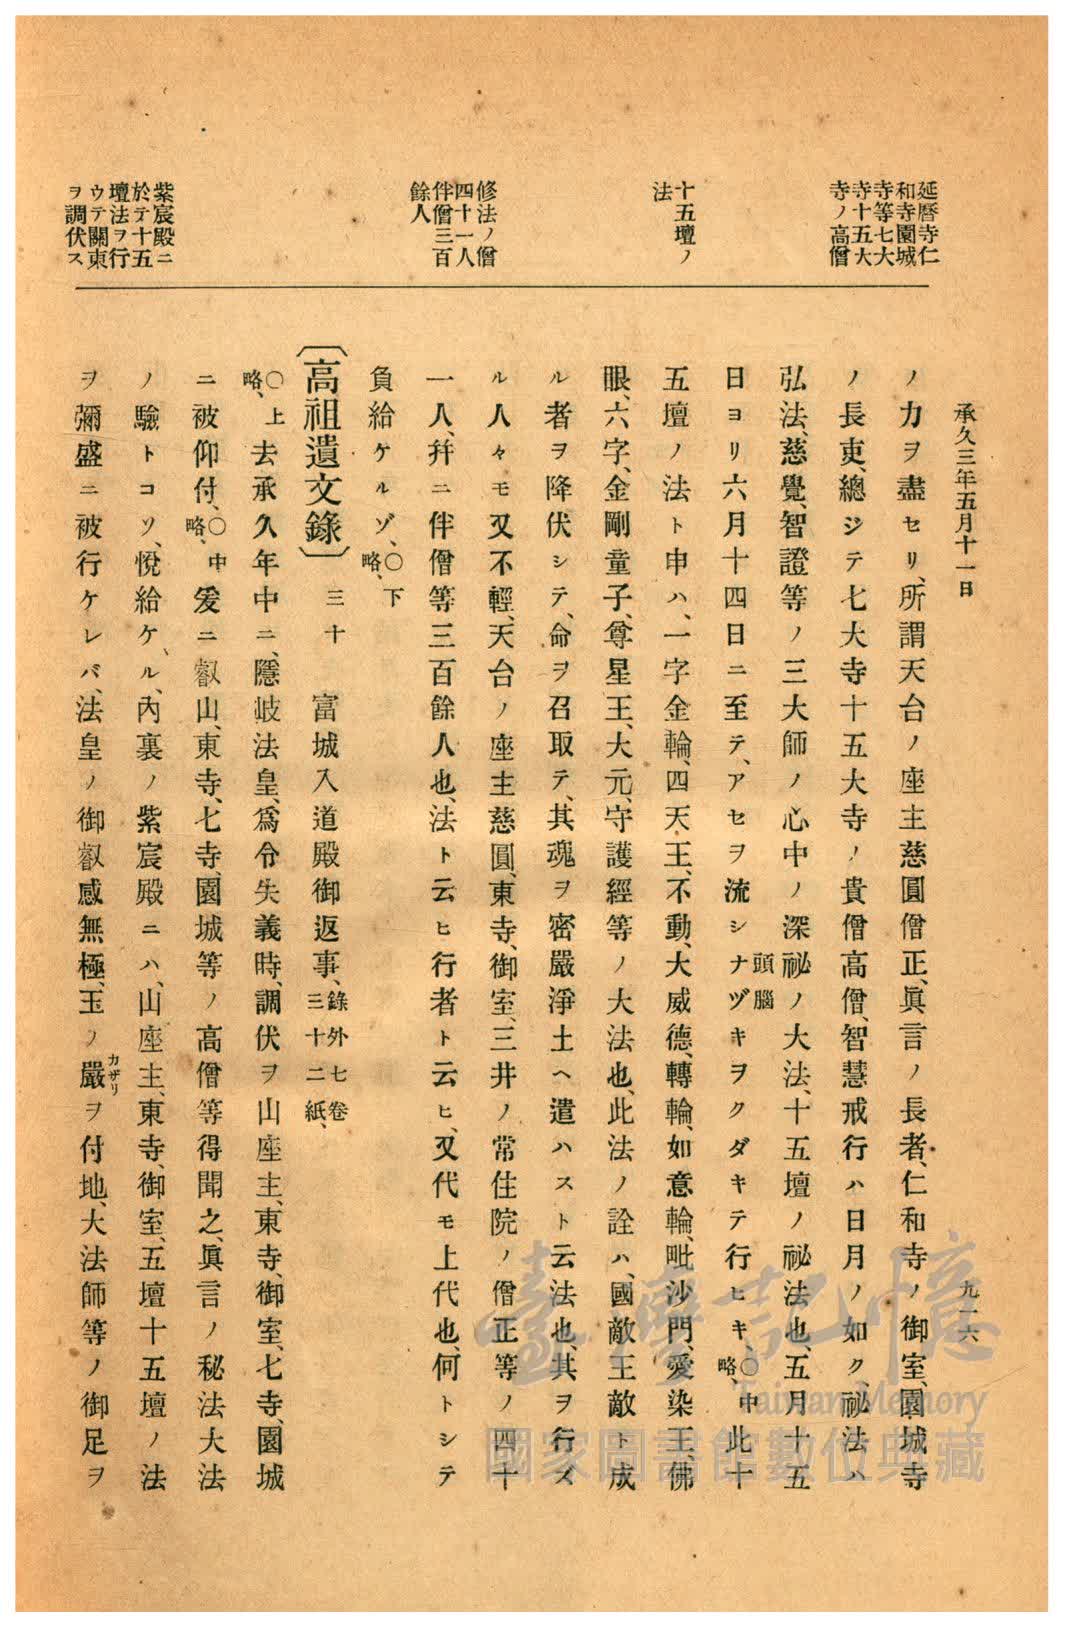 承久三年五月十一日
九一六
延曆寺仁
和寺園城
寺等七大
寺十五大
寺ノ高僧
十五壇ノ
法
修法ノ僧
四十一人
伴僧三百
餘人
紫宸殿ニ
於テ十五
壇法ヲ行
ウテ關東
ヲ調伏ス
ノ力ヲ盡セリ、所謂天台ノ座主慈圓僧正、眞言ノ長者、仁和寺ノ御室、園城寺
ノ長吏、總ジテ七大寺十五大寺ノ貴僧高僧、智慧戒行ハ日月ノ如ク、祕法ハ
弘法、慈覺、智證等ノ三大師ノ心中ノ深祕ノ大法、十五壇ノ祕法也、五月十五
日ヨリ六月十四日ニ至テ、アセヲ流シナヅキヲクダキテ行ヒキ、○中略、此十
頭腦
五壇ノ法ト申ハ、一字金輪、四天王、不動、大威德、轉輪、如意輪、毗沙門、愛染王、佛
眼、六字、金剛童子、尊星王、大元、守護經等ノ大法也、此法ノ詮ハ、國敵王敵ト成
ル者ヲ降伏シテ、命ヲ召取テ、其魂ヲ密嚴淨土ヘ遣ハスト云法也、其ヲ行ズ
ル人々モ又不輕、天台ノ座主慈圓、東寺、御室、三井ノ常住院ノ僧正等ノ四十
一人、幷ニ伴僧等三百餘人也、法ト云ヒ行者ト云ヒ、又代モ上代也、何トシテ
負給ケルゾ、○下略、
〔高祖遺文錄〕 三十 富城入道殿御返事、錄外七卷三十二紙、
○上略、去承久年中ニ、隱岐法皇、爲令失義時、調伏ヲ山座主、東寺、御室、七寺、園城
ニ被仰付、○中略、爰ニ叡山、東寺、七寺、園城等ノ高僧等得聞之、眞言ノ秘法大法
ノ驗トコソ、悅給ケル、內裏ノ紫宸殿ニハ、山座主、東寺、御室、五壇十五壇ノ法
ヲ彌盛ニ被行ケレバ、法皇ノ御叡感無極、玉ノ嚴ヲ付地、大法師等ノ御足ヲ
カザリ
臺灣記憶
Taiwan Memory
國家圖書館數位典藏